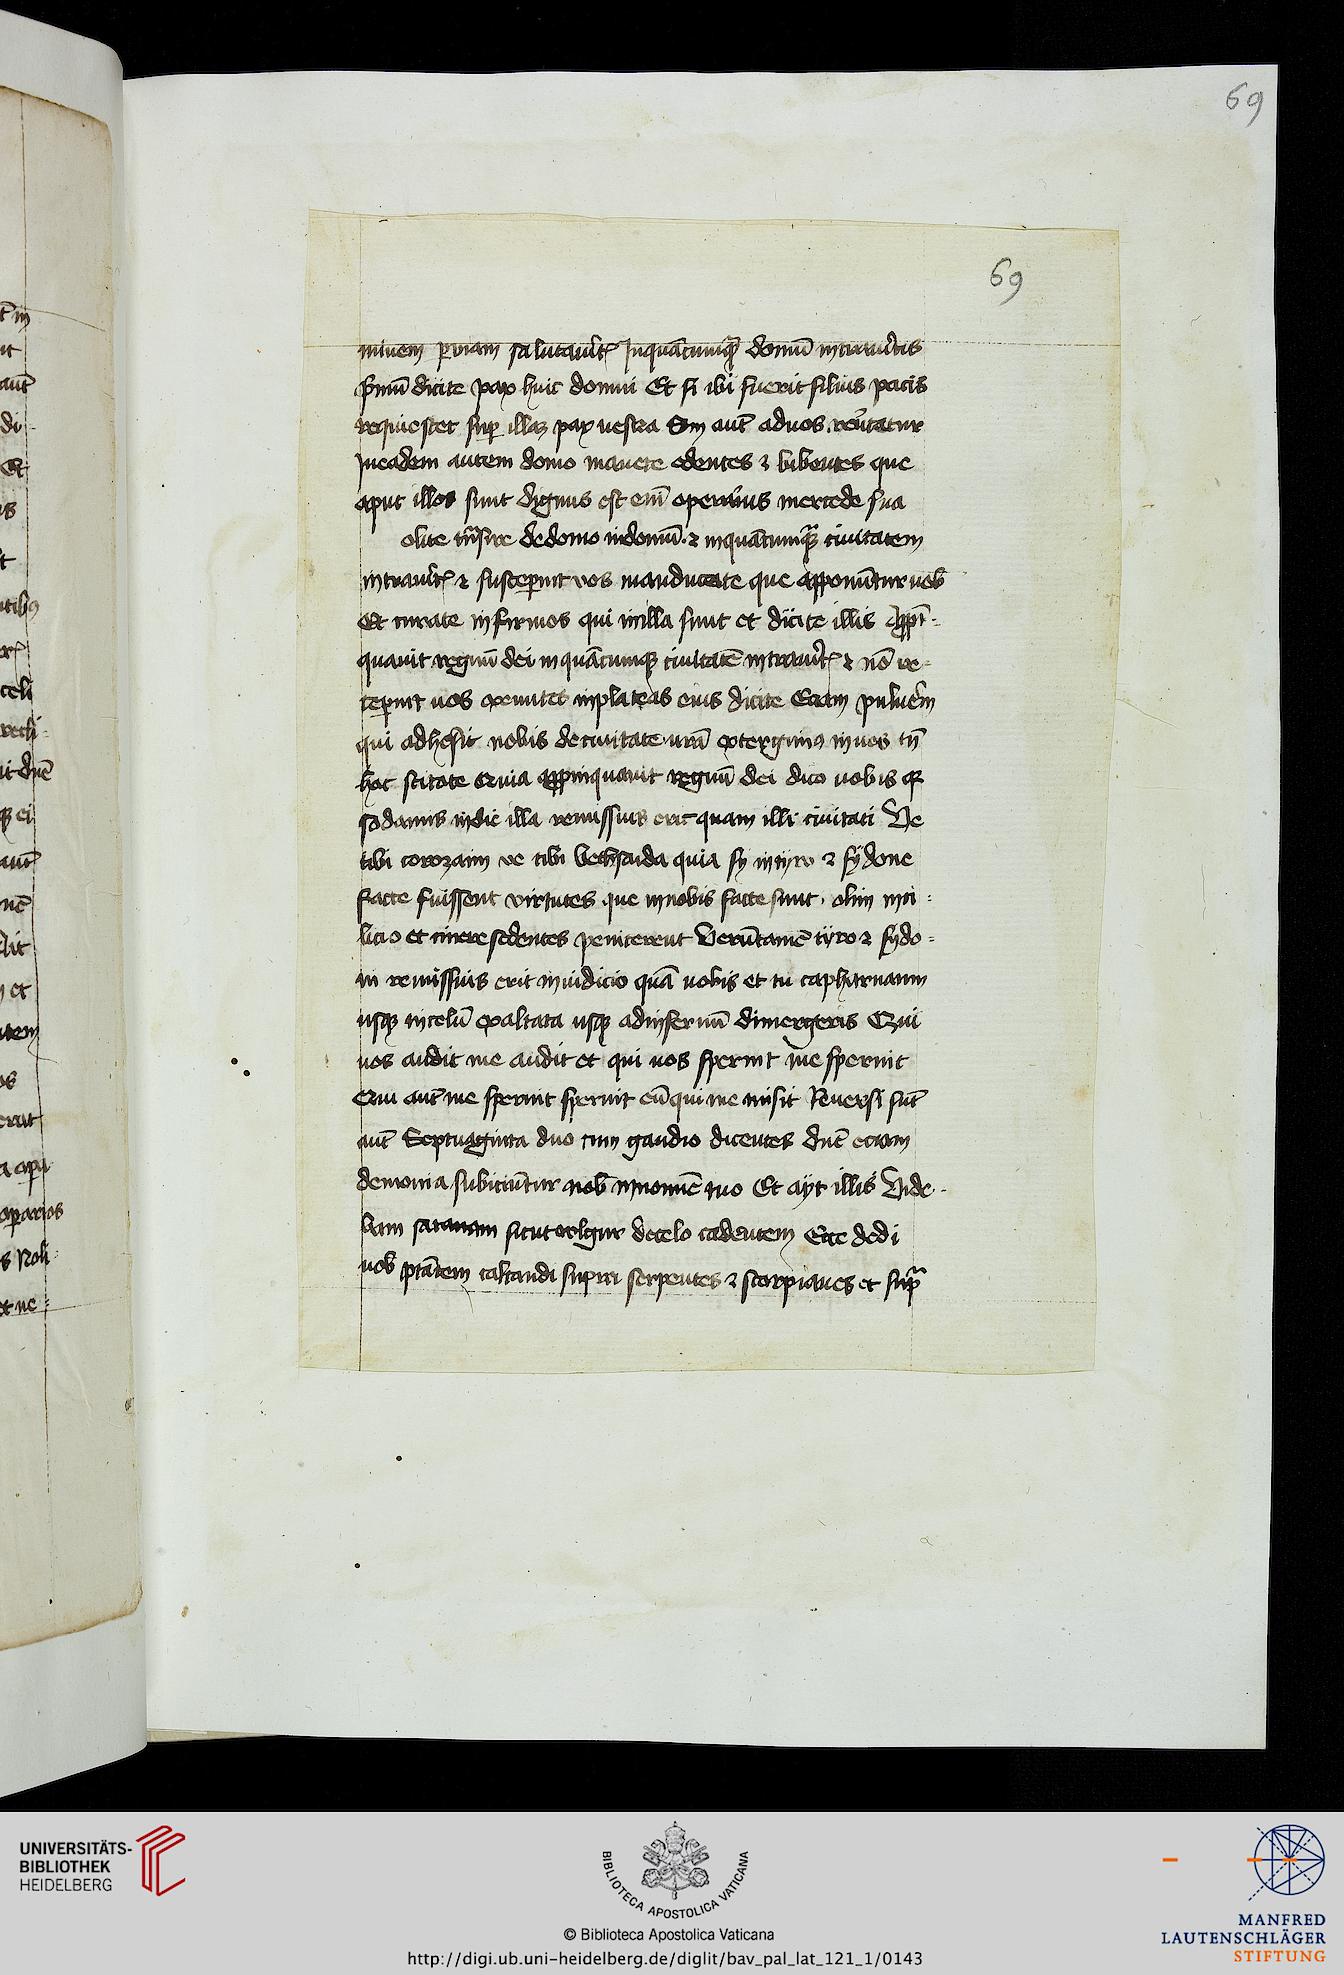 69
69
minem p viam salutaűtꝭ Inquācumqꝫ domū intrauītis
pͥmū dicite pax huic domui Et si ibi fuerit filius pacis
requiescet sup illaꝫ pax uestra Sin autē aduos reūtatur
Ineadem autem domo manete edentes ⁊ bibentes que
aput illos sunt dignus est em̄ operarius mercede sua
olite tn̄sire dedomo indomū ⁊ inquācumqꝫ ciuitatem
intrauītꝭ ⁊ susceperint vos manducate que apponūtur uob
Et curate infirmos qui inilla sunt et dicite illis Appī-
quauit regnū dei inquācumqꝫ ciuitatē intrauītꝭ ⁊ nō re-
ceperint uos exeuntes inplateas eius dicite Eciam puluerē
qui adhesit nobis deciuitate urā extergimꝰ inuos tn̄
hoc scitote Quia appinquauit regnū dei dico uobis qꝛ
sodamis indie illa remissius erit quam illi ciuitati Ve
tibi corozaim ve tibi bethsaida quia sy intyro ⁊ sydone
facte fuissent virtutes que inuobis facte sunt olim inci-
licio et cinere sedentes peniterent Verūtamē tyro ⁊ sydo-
ni remissius erit iniudicio quā uobis et tu capharnaum
usqꝫ incelū exaltata usqꝫ adinfernū dimergeris Qui
uos audit me audit et qui uos spernit me spernit
Qui autē me spernit spernit eū qui me misit Reuersi sūt
autē Septuaginta duo cum gaudio dicentes dn̄e eciam
demonia subiciūtur nob innomīe tuo Et ayt illis Vide-
bam satanam sicut wlgur decelo cadentem Ecce dedi
uob ptātem calcandi supra serpentes ⁊ scorpiones et supͣ
UNIVERSITÄTS-
BIBLIOTHEK
HEIDELBERG
BIBLIOTECA APOSTOLICA VATICANA
© Biblioteca Apostolica Vaticana
http://digi.ub.uni-heidelberg.de/diglit/bav_pal_lat_121_1/0143
MANFRED
LAUTENSCHLÄGER
STIFTUNG